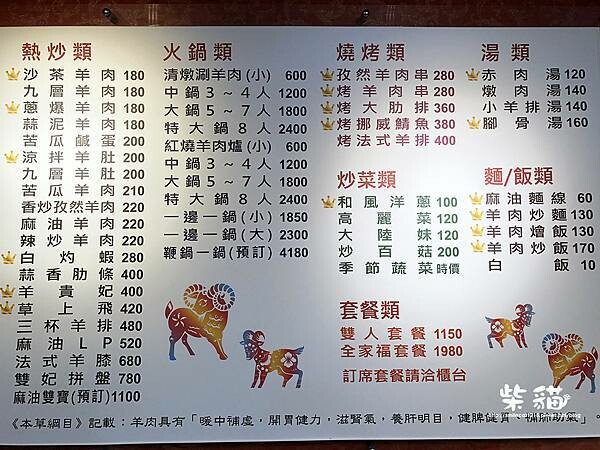 熱炒類
沙茶羊肉 180
九層羊肉 180
蔥爆羊肉 180
蒜泥羊肉 180
苦瓜鹹蛋 200
涼拌羊肚 200
九層羊肚 200
苦瓜羊肉 210
香炒孜然羊肉 220
麻油羊肉 220
辣炒羊肉 220
白灼蝦 280
蒜香肋條 400
羊貴妃 400
草上飛 420
三杯羊排 480
麻油LP 520
法式羊膝 680
雙妃拼盤 780
麻油雙寶(預訂) 1100
火鍋類
清燉涮羊肉(小) 600
中鍋3~4人 1200
大鍋5~7人 1800
特大鍋8人 2400
紅燒羊肉爐(小) 600
中鍋3~4人 1200
大鍋5~7人 1800
特大鍋8人 2400
一邊一鍋(小) 1850
一邊一鍋(大) 2300
鞭鍋一鍋(預訂) 4180
燒烤類
孜然羊肉串 280
烤羊肉串 280
烤大肋排 360
烤挪威鯖魚 380
烤法式羊排 400
炒菜類
和風洋蔥 100
高麗菜 120
大陸妹 120
炒百菇 200
季節蔬菜 時價
套餐類
雙人套餐 1150
全家福套餐 1980
訂席套餐請洽櫃台
湯類
赤肉湯 120
燉肉湯 140
小羊排湯 140
腳骨湯 160
麵/飯類
麻油麵線 60
羊肉炒麵 130
羊肉燴飯 130
羊肉炒飯 170
白飯 10
柴貓
《本草綱目》記載：羊肉具有「暖中補虛，開胃健力，滋腎氣，養肝明目，健脾健胃、補肺助氣」。